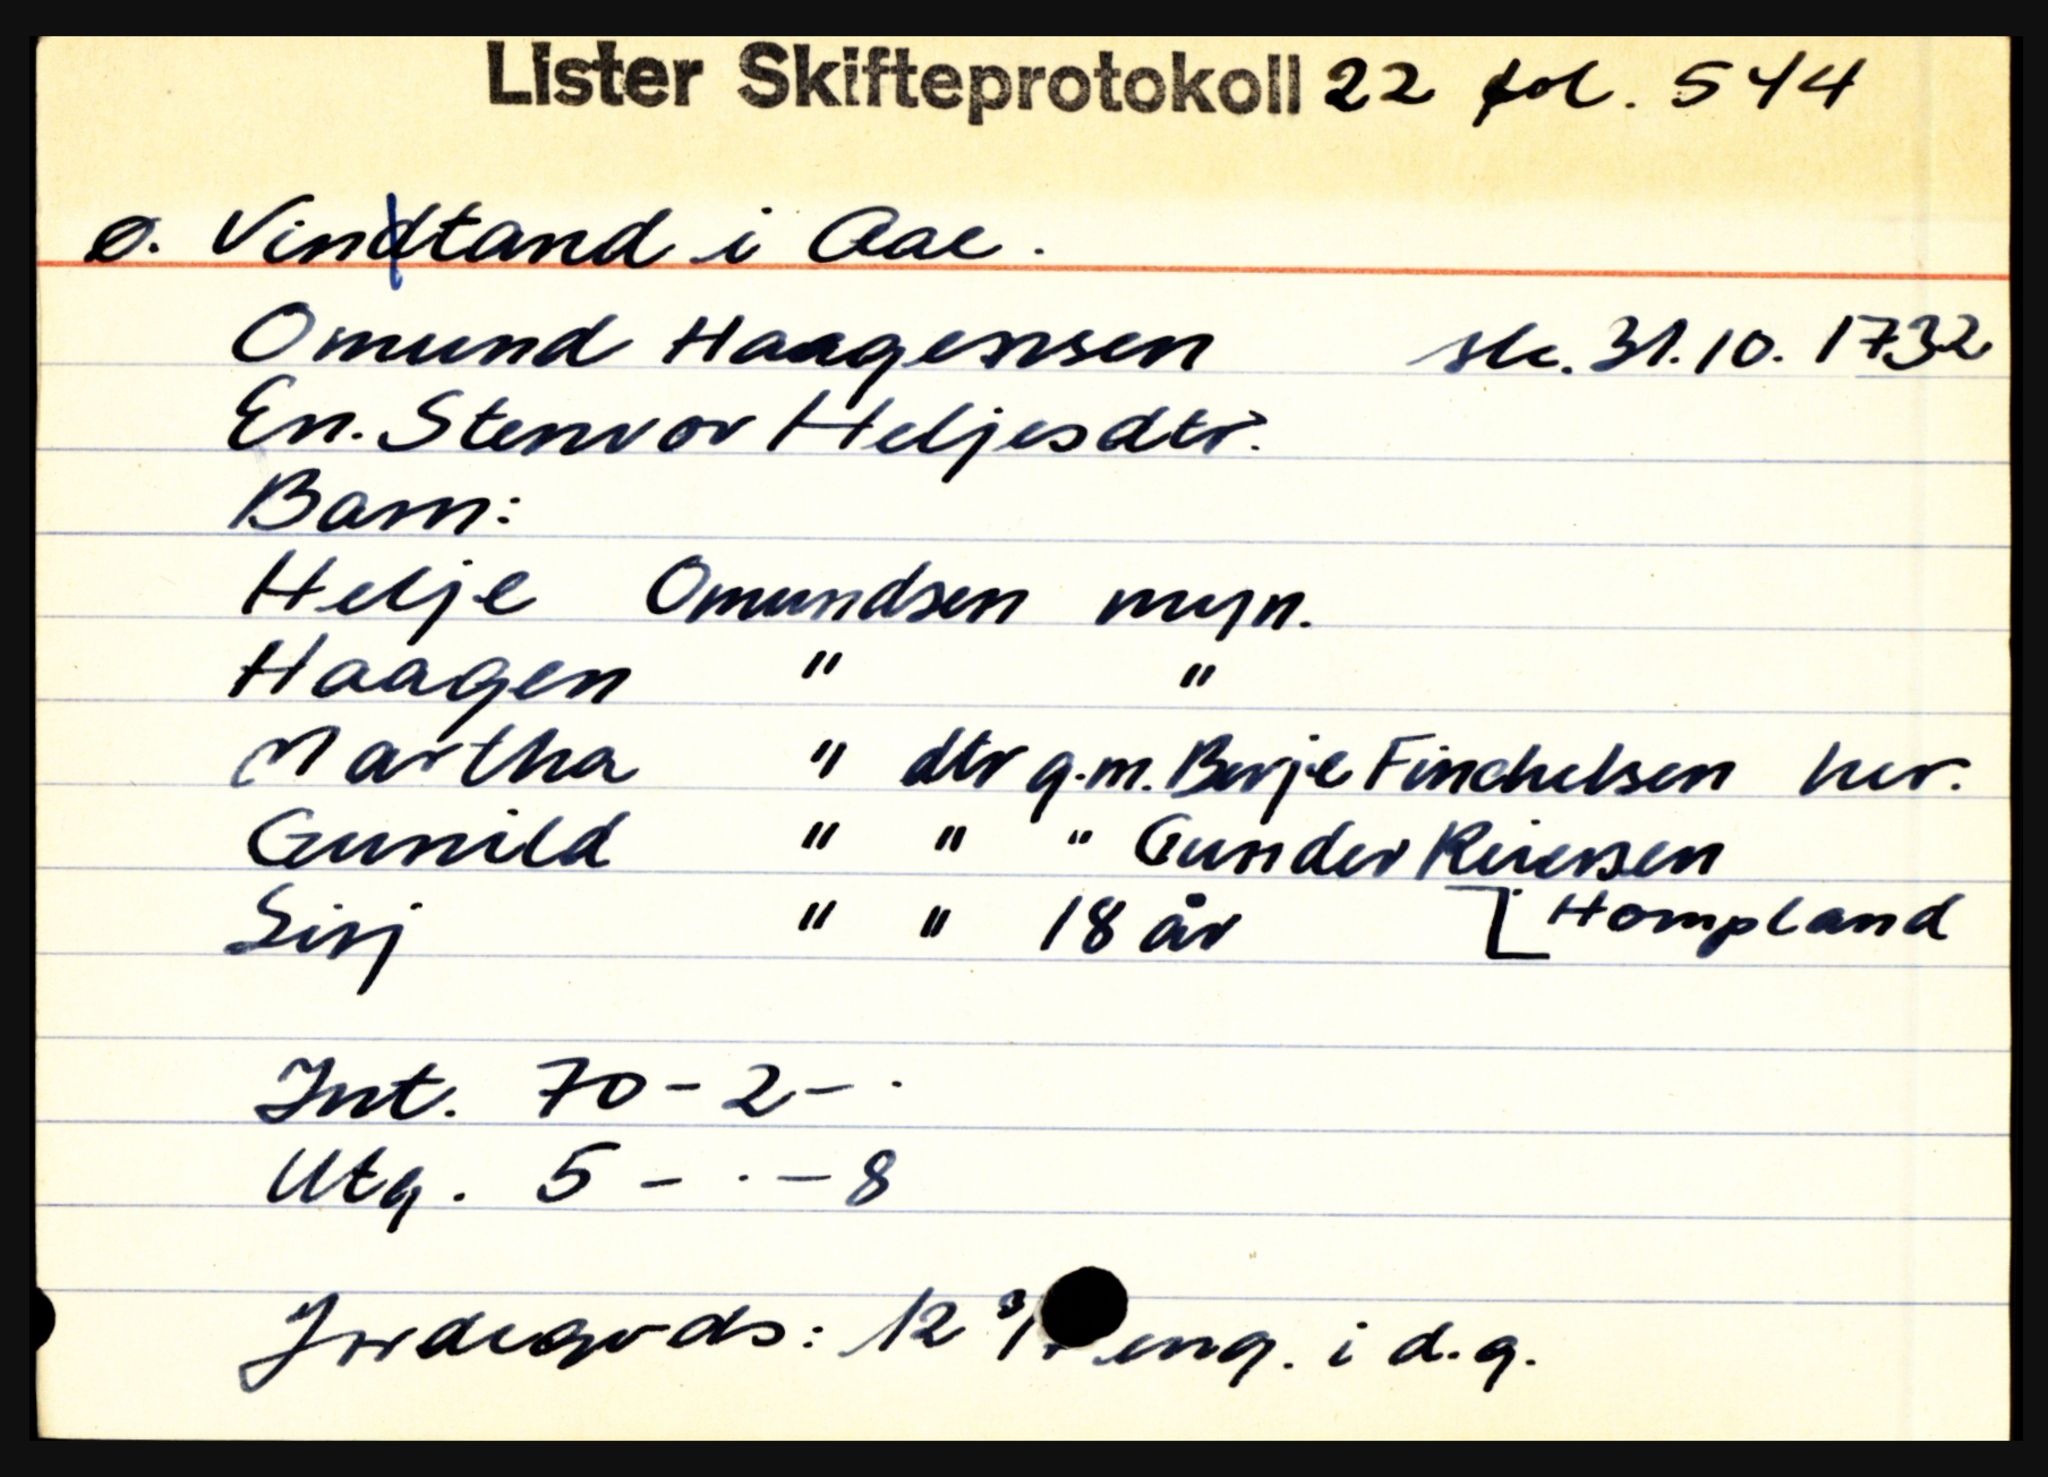 Lister Skifteprotokoll 22 fol. 544
ø. Vindtand i Aae.
Omund Haagensen sk. 31.10.1732
En. Stenvor Heljesdtr.
Barn:
Helje Omundsen myn.
Haagen " "
Martha " dtr g.m. Berje Finchelsen her.
Gunild " " " Gunder Reiersen
Sirj " " 18 år [Hompland
Int. 70 - 2 - ·
Utg. 5 - · - 8
Jordegods: 12 eng. i d.g.